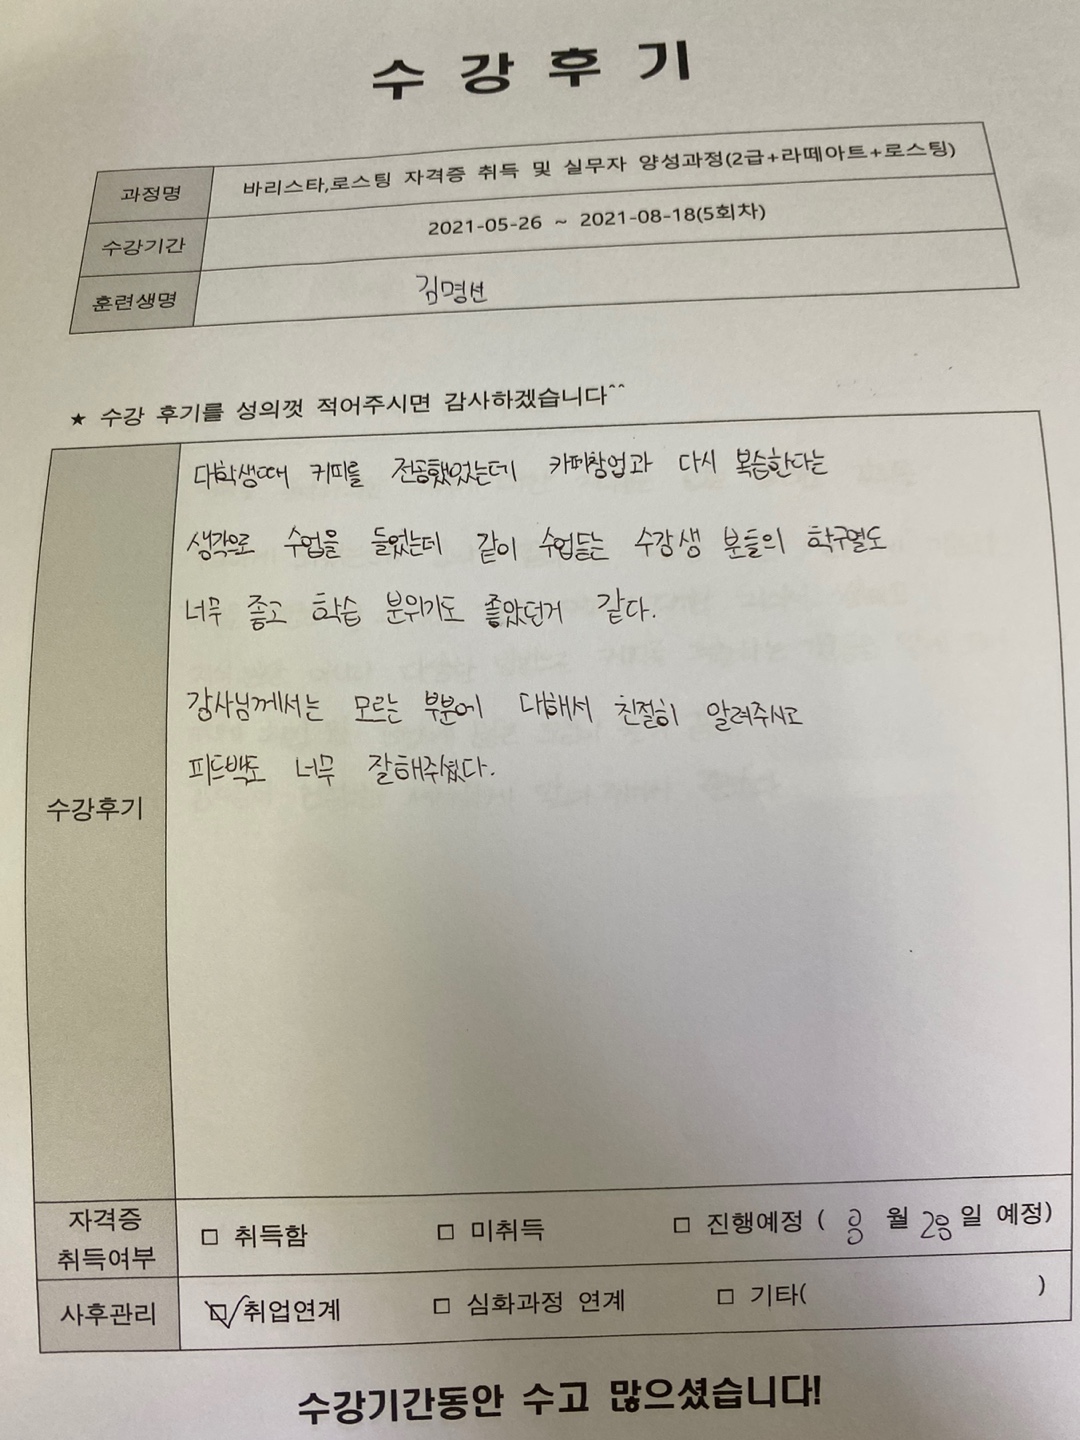 수강후기
과정명 바리스타,로스팅 자격증 취득 및 실무자 양성과정(2급+라떼아트+로스팅)
수강기간 2021-05-26 ~ 2021-08-18(5회차)
훈련생명 김명선
★ 수강 후기를 성의껏 적어주시면 감사하겠습니다^^
대학생때 커피를 전공했었는데 카페창업과 다시 복습한다는
생각으로 수업을 들었는데 같이 수업듣는 수강생 분들의 학구열도
너무 좋고 학습 분위기도 좋았던거 같다.
강사님께서는 모르는 부분에 대해서 친절히 알려주시고
피드백도 너무 잘해주셨다.
수강후기
자격증
취득여부
□ 취득함 □ 미취득 □ 진행예정 ( 8 월 28 일 예정)
사후관리 ☑ 취업연계 □ 심화과정 연계 □ 기타( )
수강기간동안 수고 많으셨습니다!